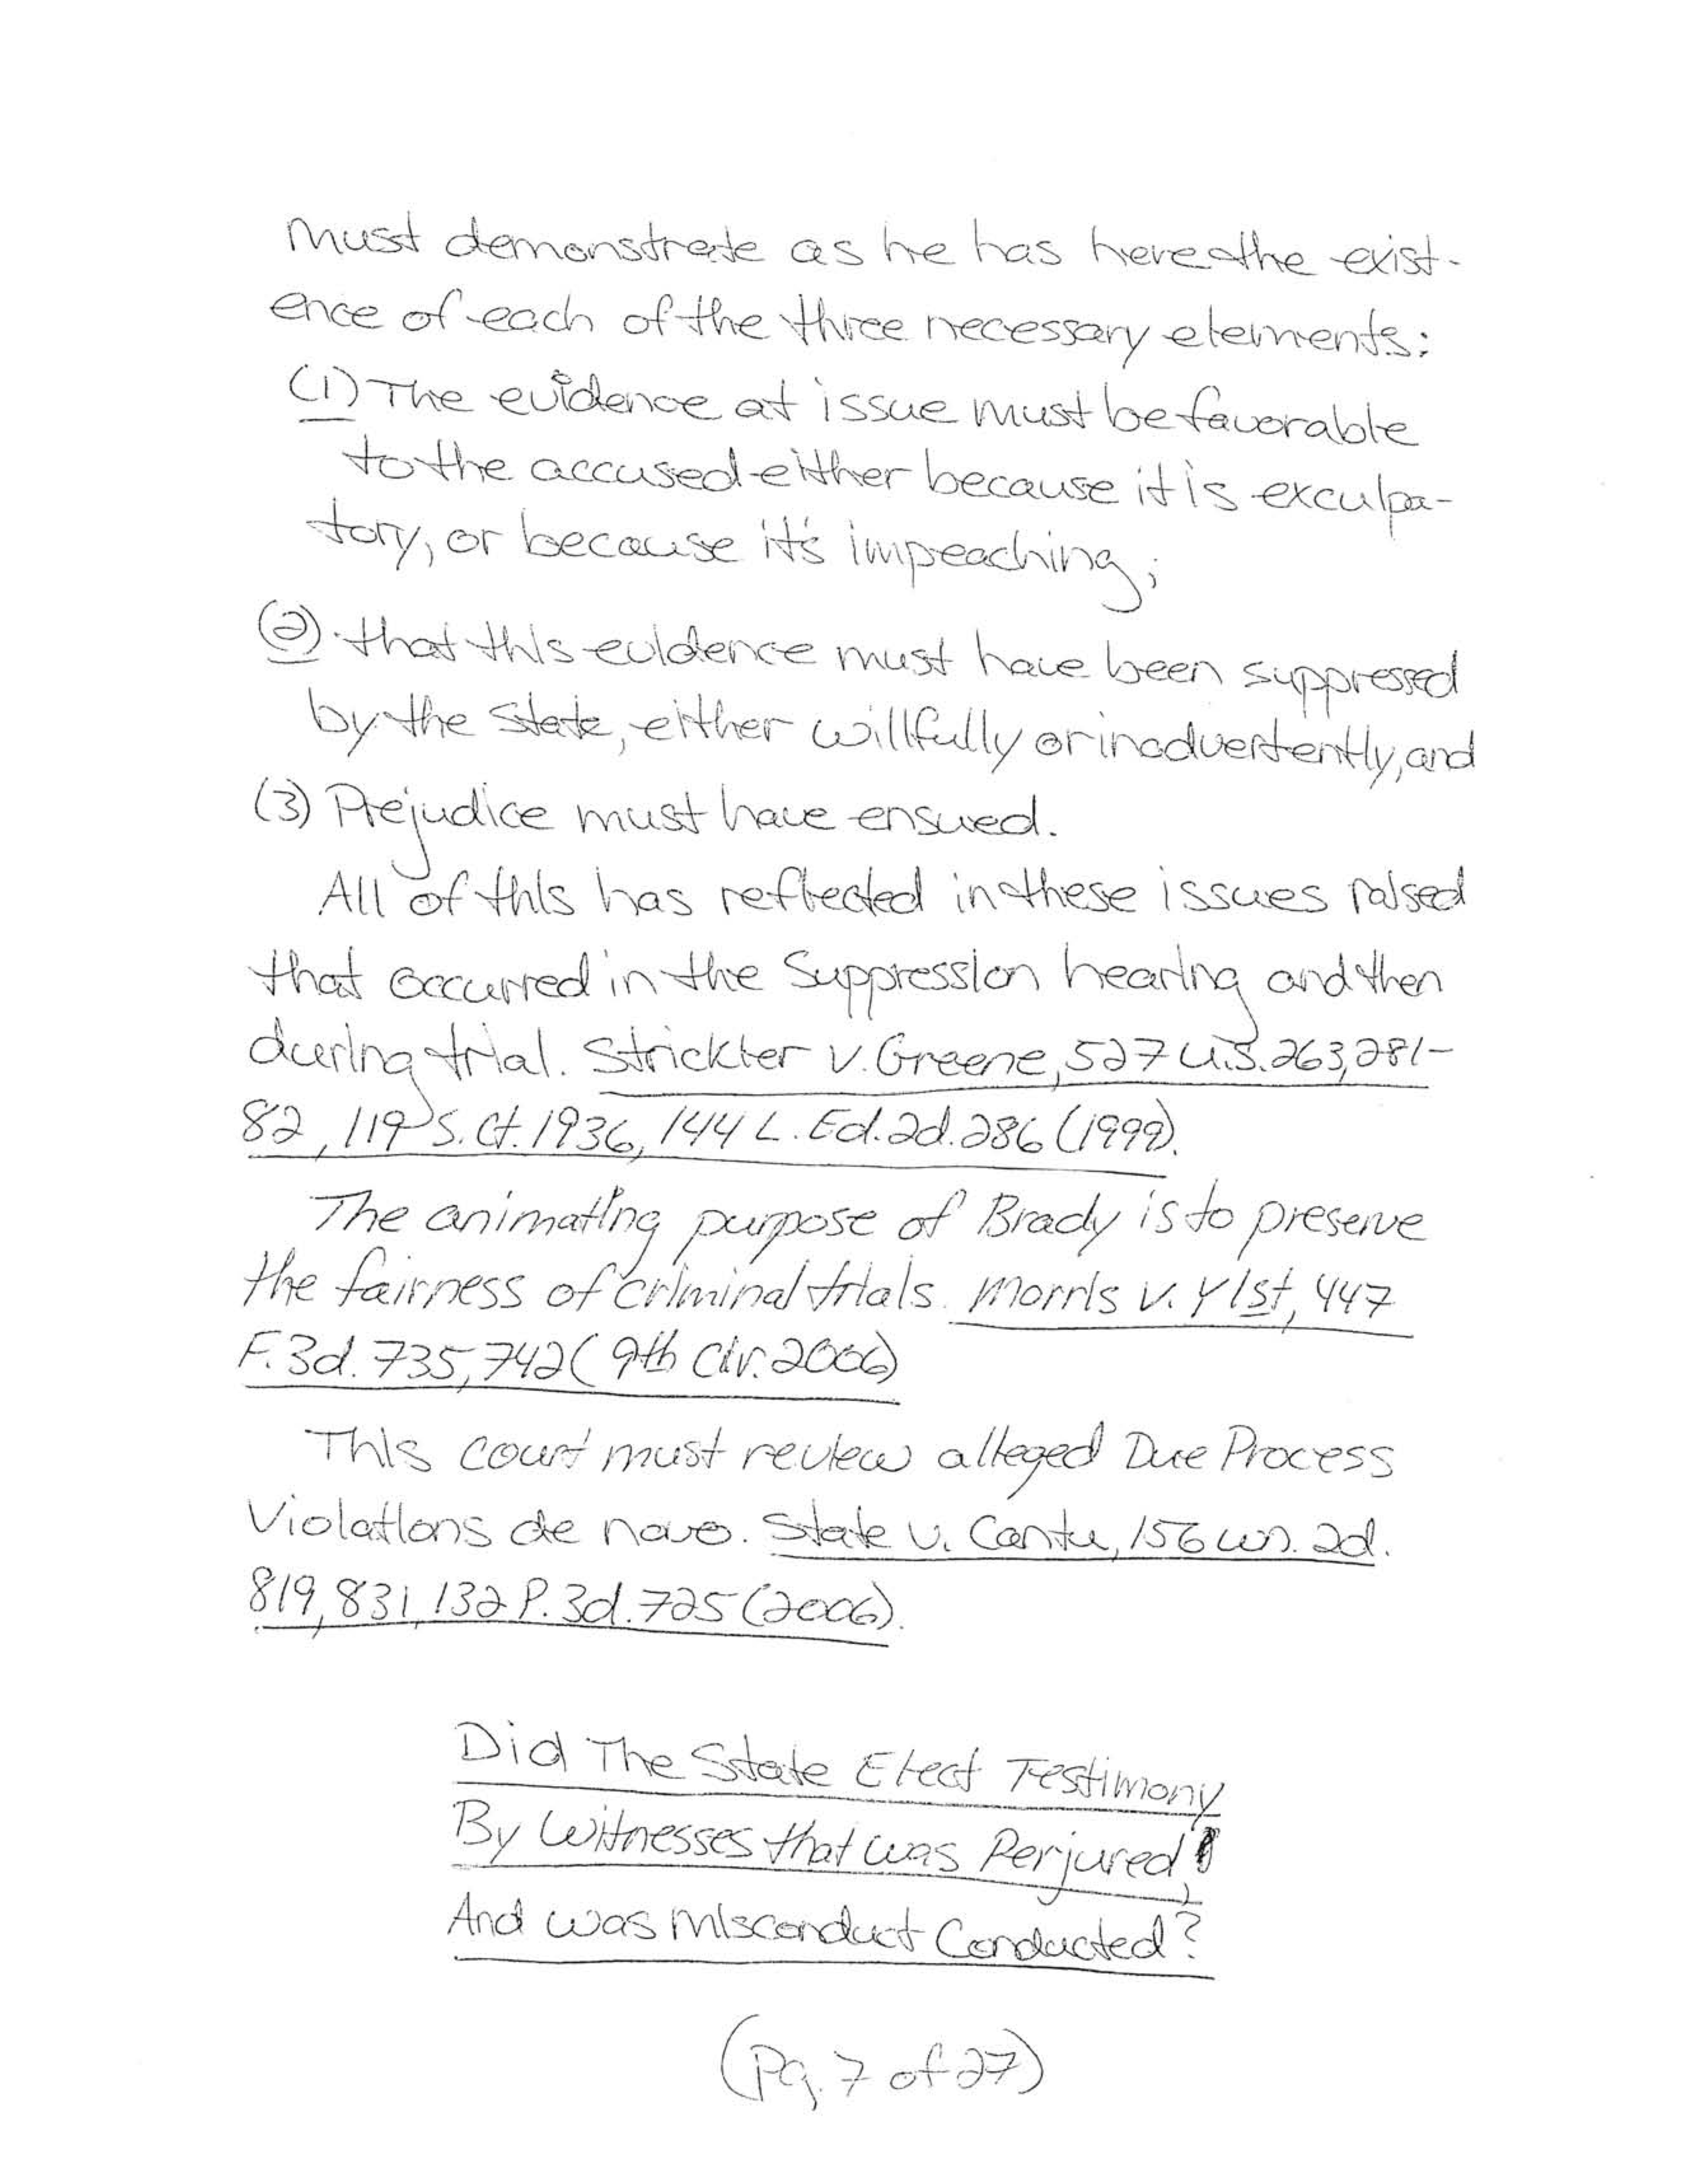 must demonstrate as he has here the exist-
ence of each of the three necessary elements:
(1) The evidence at issue must be favorable
to the accused either because it is exculpa-
tory, or because it's impeaching;
(2) that this evidence must have been suppressed
by the State, either willfully or inadvertently, and
(3) Prejudice must have ensued.
All of this has reflected in these issues raised
that occurred in the Suppression hearing and then
during trial. Strickler v. Greene, 527 U.S. 263, 281-
82, 119 S. Ct. 1936, 144 L. Ed. 2d. 286 (1999).
The animating purpose of Brady is to preserve
the fairness of criminal trials. Morris v. Ylst, 447
F. 3d. 735, 742 (9th Cir. 2006)
This court must review alleged Due Process
Violations de novo. State v. Cantu, 156 wn. 2d.
819, 831, 132 P. 3d. 725 (2006).
Did The State Elect Testimony
By Witnesses that was Perjured,
And was Misconduct Conducted?
(Pg. 7 of 27)